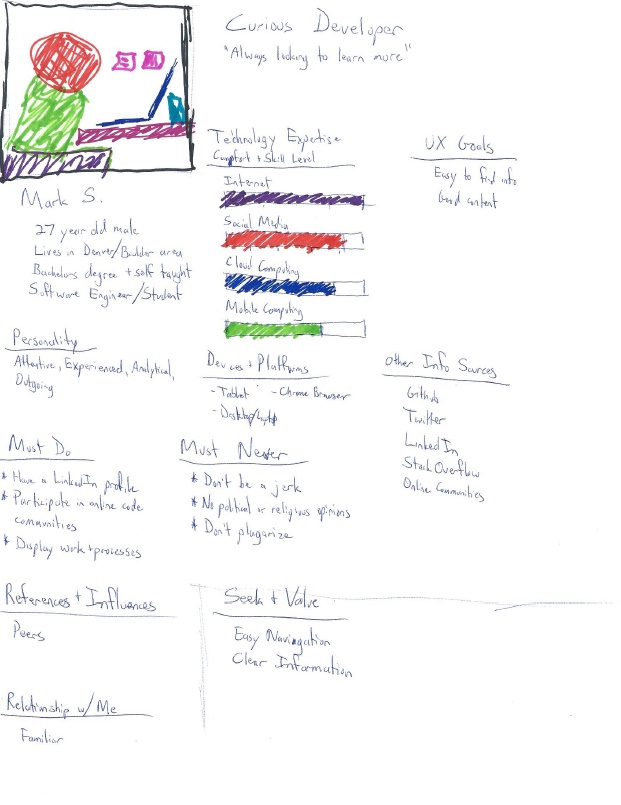 Curious Developer
"Always looking to learn more"
Mark S.
27 year old male
Lives in Denver/Boulder area
Bachelors degree + self taught
Software Engineer/Student
Technology Expertise
Comfort + Skill Level
Internet
Social Media
Cloud Computing
Mobile Computing
UX Goals
Easy to find info
Good content
Personality
Attentive, Experienced, Analytical,
Outgoing
Devices + Platforms
- Tablet - Chrome Browser
- Desktop/Laptop
Other Info Sources
Github
Twitter
LinkedIn
Stack Overflow
Online Communities
Must Do
* Have a LinkedIn profile
* Participate in online code
communities
* Display work + processes
Must Never
* Don't be a jerk
* No political or religious opinions
* Don't plugarize
References + Influences
Peers
Seek + Value
Easy Navingation
Clear Information
Relationship w/ Me
Familiar